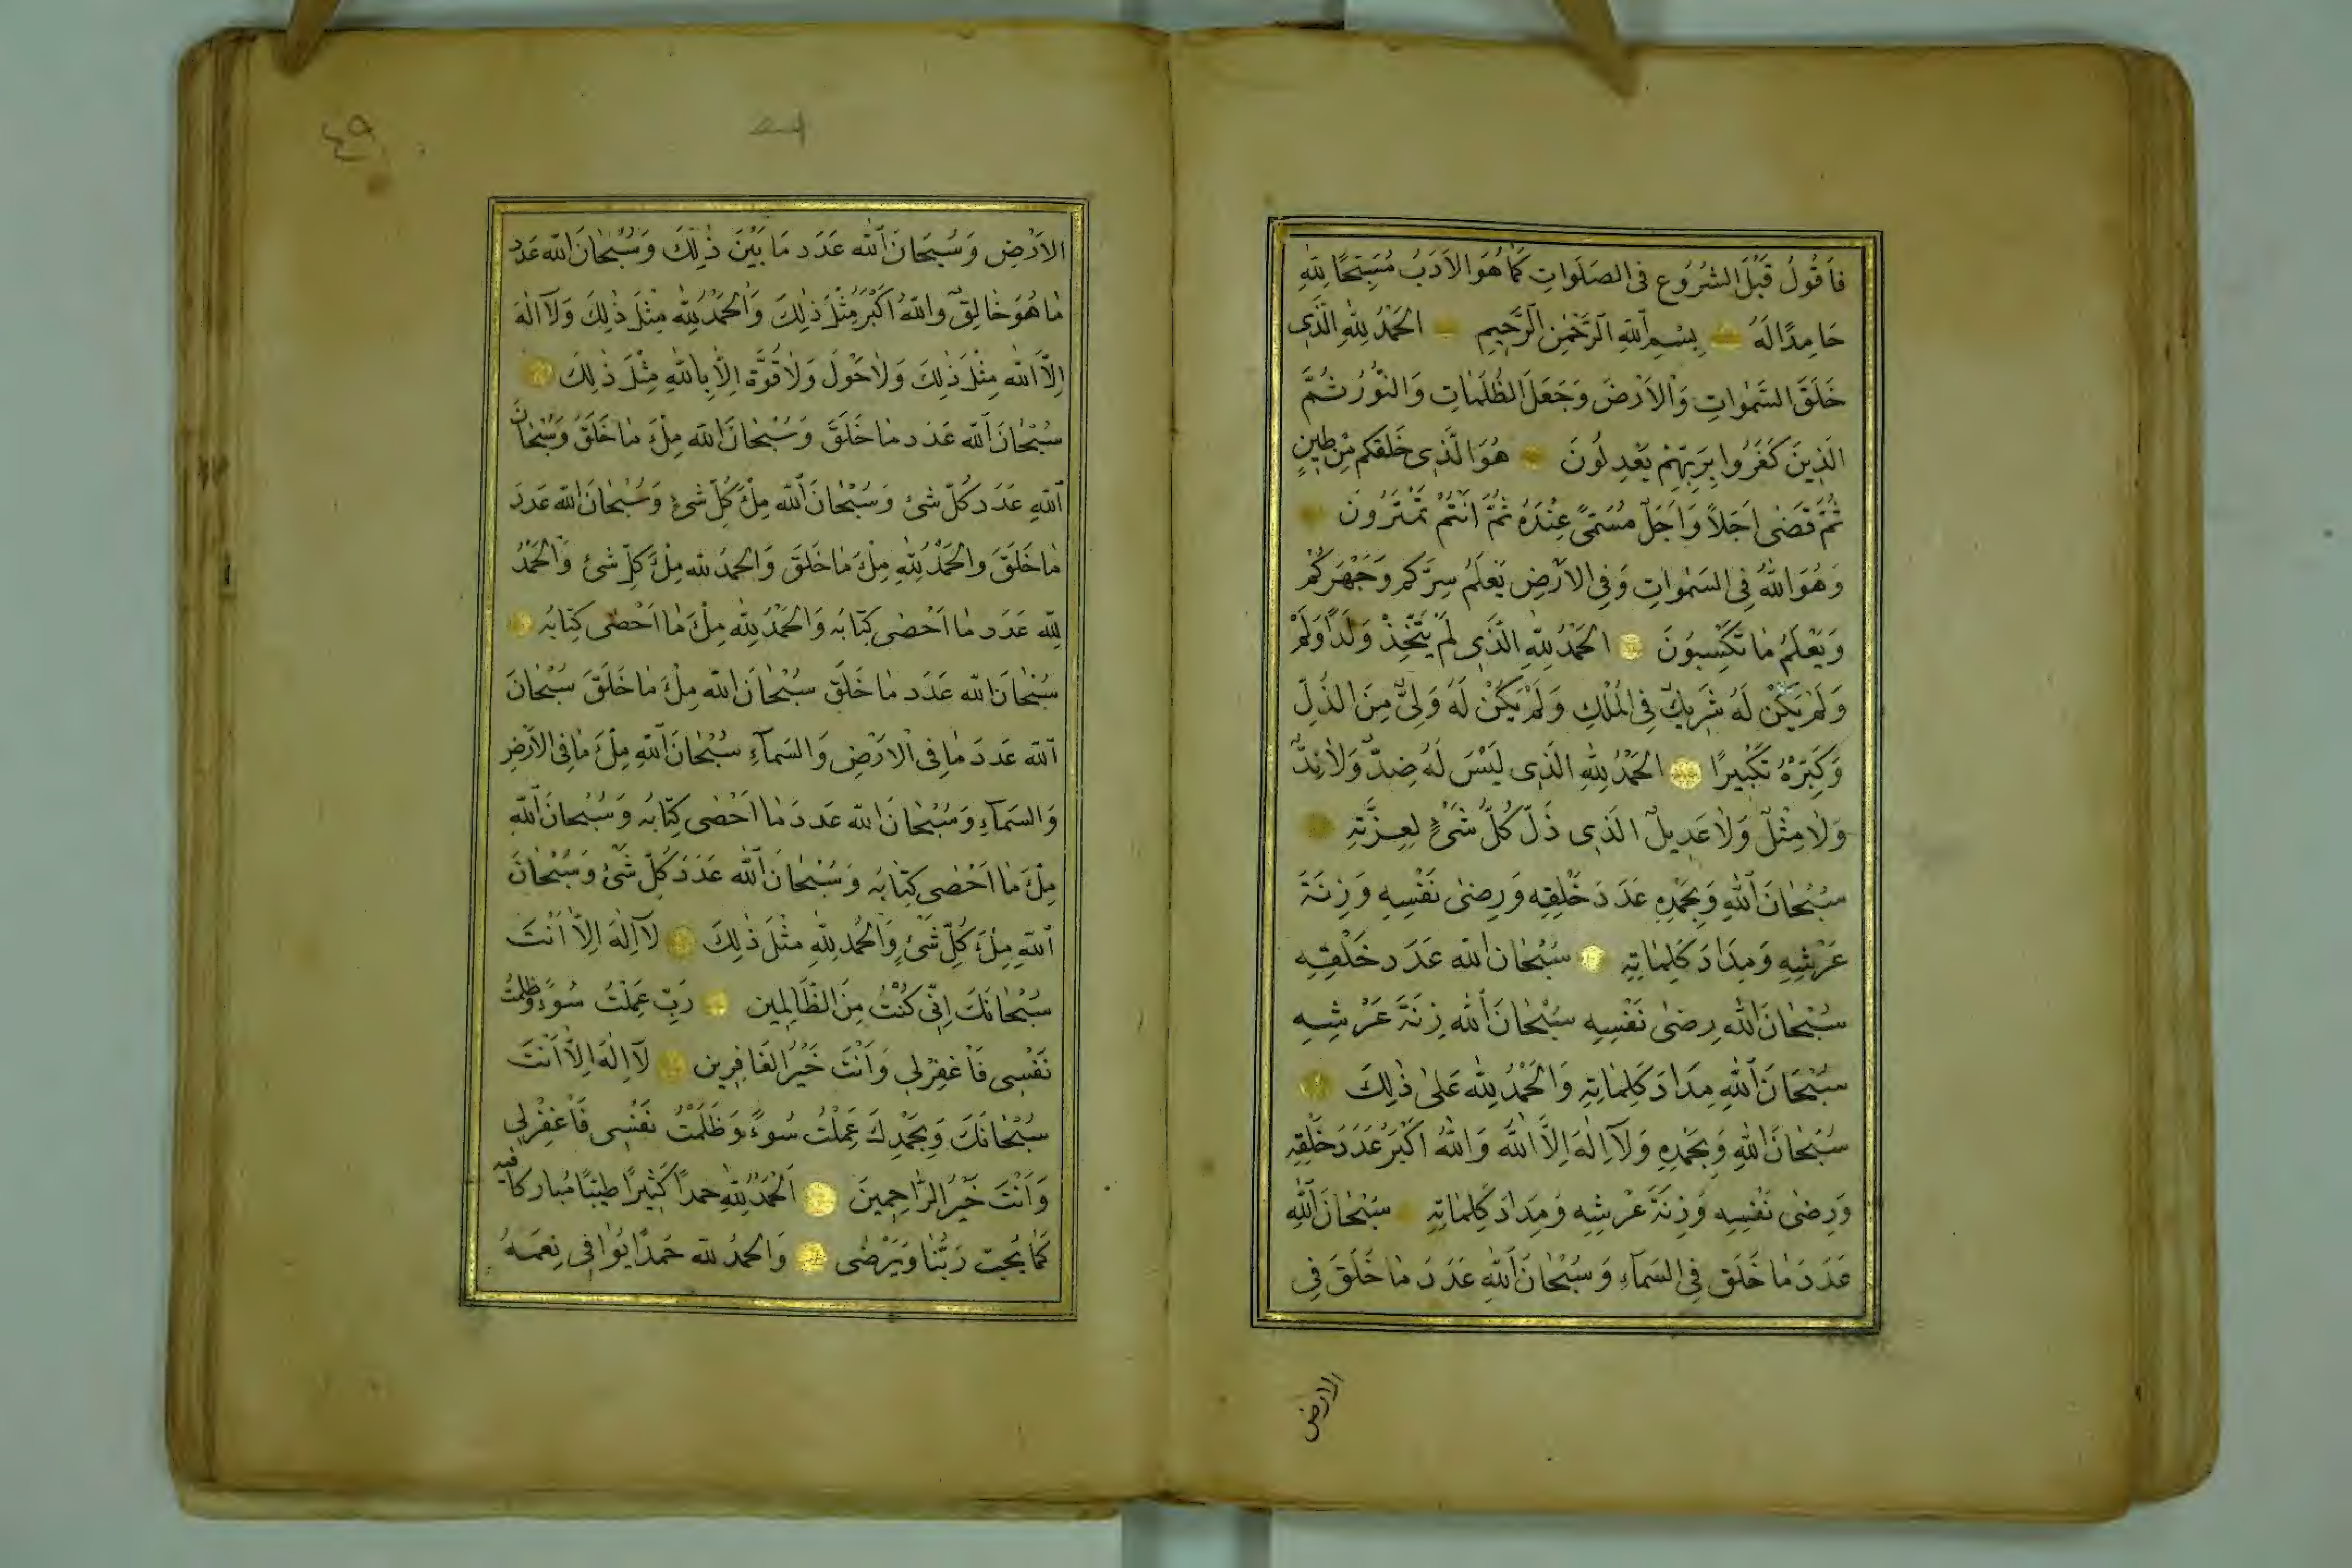 فَاَقُولُ قَبْلَ الشُّرُوعِ فِى الصَلَوَاتِ كَمَا هُوَ الاَدَبُ مُسَبِّحًا لِلّٰهِ
حَامِدًا لَهُ بِسْمِ اللّٰهِ الرَّحْمٰنِ الرَّحِيمِ الحَمْدُ لِلّٰهِ الَّذِى
خَلَقَ السَّمٰوَاتِ وَالاَرْضَ وَجَعَلَ الظُّلُمَاتِ وَالنُّورَ ثُمَّ
الَّذِينَ كَفَرُوا بِرَبِّهِمْ يَعْدِلُونَ هُوَ الَّذِى خَلَقَكُمْ مِنْ طِينٍ
ثُمَّ قَضٰى اَجَلاً وَاَجَلٌ مُسَمًّى عِنْدَهُ ثُمَّ اَنْتُمْ تَمْتَرُونَ
وَهُوَ اللّٰهُ فِى السَمٰوَاتِ وَفِى الاَرْضِ يَعْلَمُ سِرَّكُمْ وَجَهْرَكُمْ
وَيَعْلَمُ مَا تَكْسِبُونَ الحَمْدُ لِلّٰهِ الَّذِى لَمْ يَتَّخِذْ وَلَدًا وَلَمْ
وَلَمْ يَكُنْ لَهُ شَرِيكٌ فِى المُلْكِ وَلَمْ يَكُنْ لَهُ وَلِىٌّ مِنَ الذُلِّ
وَكَبِّرْهُ تَكْبِيرًا الحَمْدُ لِلّٰهِ الَّذِى لَيْسَ لَهُ ضِدٌّ وَلَا نِدٌّ
وَلَا مِثْلٌ وَلَا عَدِيلٌ الَّذِى ذَلَّ كُلُّ شَىْءٍ لِعِزَّتِهِ
سُبْحَانَ اللّٰهِ وَبِحَمْدِهِ عَدَدَ خَلْقِهِ وَرِضٰى نَفْسِهِ وَزِنَةَ
عَرْشِهِ وَمِدَادَ كَلِمَاتِهِ سُبْحَانَ اللّٰه عَدَدَ خَلْقِهِ
سُبْحَانَ اللّٰه رِضٰى نَفْسِهِ سُبْحَانَ اللّٰه زِنَةَ عَرْشِهِ
سُبْحَانَ اللّٰهِ مِدَادَ كَلِمَاتِهِ وَالحَمْدُ لِلّٰه عَلٰى ذٰلِكَ
سُبْحَانَ اللّٰهِ وَبِحَمْدِهِ وَلَآ اِلٰهَ اِلَّا اللّٰهُ وَاللّٰهُ اَكْبَرُ عَدَدَ خَلْقِهِ
وَرِضٰى نَفْسِهِ وَزِنَةَ عَرْشِهِ وَمِدَادَ كَلِمَاتِهِ سُبْحَانَ اللّٰهِ
عَدَدَ مَا خَلَقَ فِى السَمَآءِ وَسُبْحَانَ اللّٰهِ عَدَدَ مَا خَلَقَ فِى
الارض
٤٩
الاَرْضِ وَسُبْحَانَ اللّٰه عَدَد مَا بَيْنَ ذٰلِكَ وَسُبْحَانَ اللّٰه عَدَد
مَا هُوَ خَالِقٌ وَاللّٰهُ اَكْبَرُ مِثْلَ ذٰلِكَ وَالحَمْدُ لِلّٰهِ مِثْلَ ذٰلِكَ وَلَآ اِلٰهَ
اِلَّا اللّٰه مِثْلَ ذٰلِكَ وَلَا حَوْلَ وَلَا قُوَّةَ اِلَّا بِاللّٰهِ مِثْلَ ذٰلِكَ
سُبْحَانَ اللّٰه عَدَد مَا خَلَقَ وَسُبْحَانَ اللّٰه مِلْءَ مَا خَلَقَ وَسُبْحَانَ
اللّٰهِ عَدَد كُلِّ شَىْءٍ وَسُبْحَانَ اللّٰه مِلْءَ كُلِّ شَىْءٍ وَسُبْحَانَ اللّٰه عَدَدَ
مَا خَلَقَ وَالحَمْدُ لِلّٰهِ مِلْءَ مَا خَلَقَ وَالحَمْدُ لِلّٰه مِلْءَ كُلِّ شَىْءٍ وَالحَمْدُ
لِلّٰه عَدَد مَا اَحْصٰى كِتَابُه وَالحَمْدُ لِلّٰه مِلْءَ مَا اَحْصٰى كِتَابُه
سُبْحَانَ اللّٰه عَدَد مَا خَلَقَ سُبْحَانَ اللّٰه مِلْءَ مَا خَلَقَ سُبْحَانَ
اللّٰه عَدَدَ مَا فِى الاَرْضِ وَالسَمَآءِ سُبْحَانَ اللّٰهِ مِلْءَ مَا فِى الاَرْضِ
وَالسَمَآءِ وَسُبْحَانَ اللّٰه عَدَدَ مَا اَحْصٰى كِتَابُه وَسُبْحَانَ اللّٰهِ
مِلْءَ مَا اَحْصٰى كِتَابُه وَسُبْحَانَ اللّٰه عَدَدَ كُلِّ شَىْءٍ وَسُبْحَانَ
اللّٰهِ مِلْءَ كُلِّ شَىْءٍ وَالحَمْدُ لِلّٰهِ مِثْلَ ذٰلِكَ لَآ اِلٰهَ اِلَّا اَنْتَ
سُبْحَانَكَ اِنِّى كُنْتُ مِنَ الظَّالِمِين رَبِّ عَمِلْتُ سُوءً وَظَلَمْتُ
نَفْسِى فَاغْفِرْلِى وَاَنْتَ خَيْرُ الغَافِرِين لَآ اِلٰهَ اِلَّا اَنْتَ
سُبْحَانَكَ وَبِحَمْدِكَ عَمِلْتُ سُوءً وَظَلَمْتُ نَفْسِى فَاغْفِرْلِى
وَاَنْتَ خَيْرُ الرَّاحِمِينَ اَلحَمْدُ لِلّٰهِ حمدًا كَثِيرًا طَيِّبًا مُبَارَكًا فيه
كَمَا يُحِبّ رَبُّنَا وَيَرْضٰى وَالحمدُ للّٰه حَمْدًا يُوَافِى نِعَمَهُ